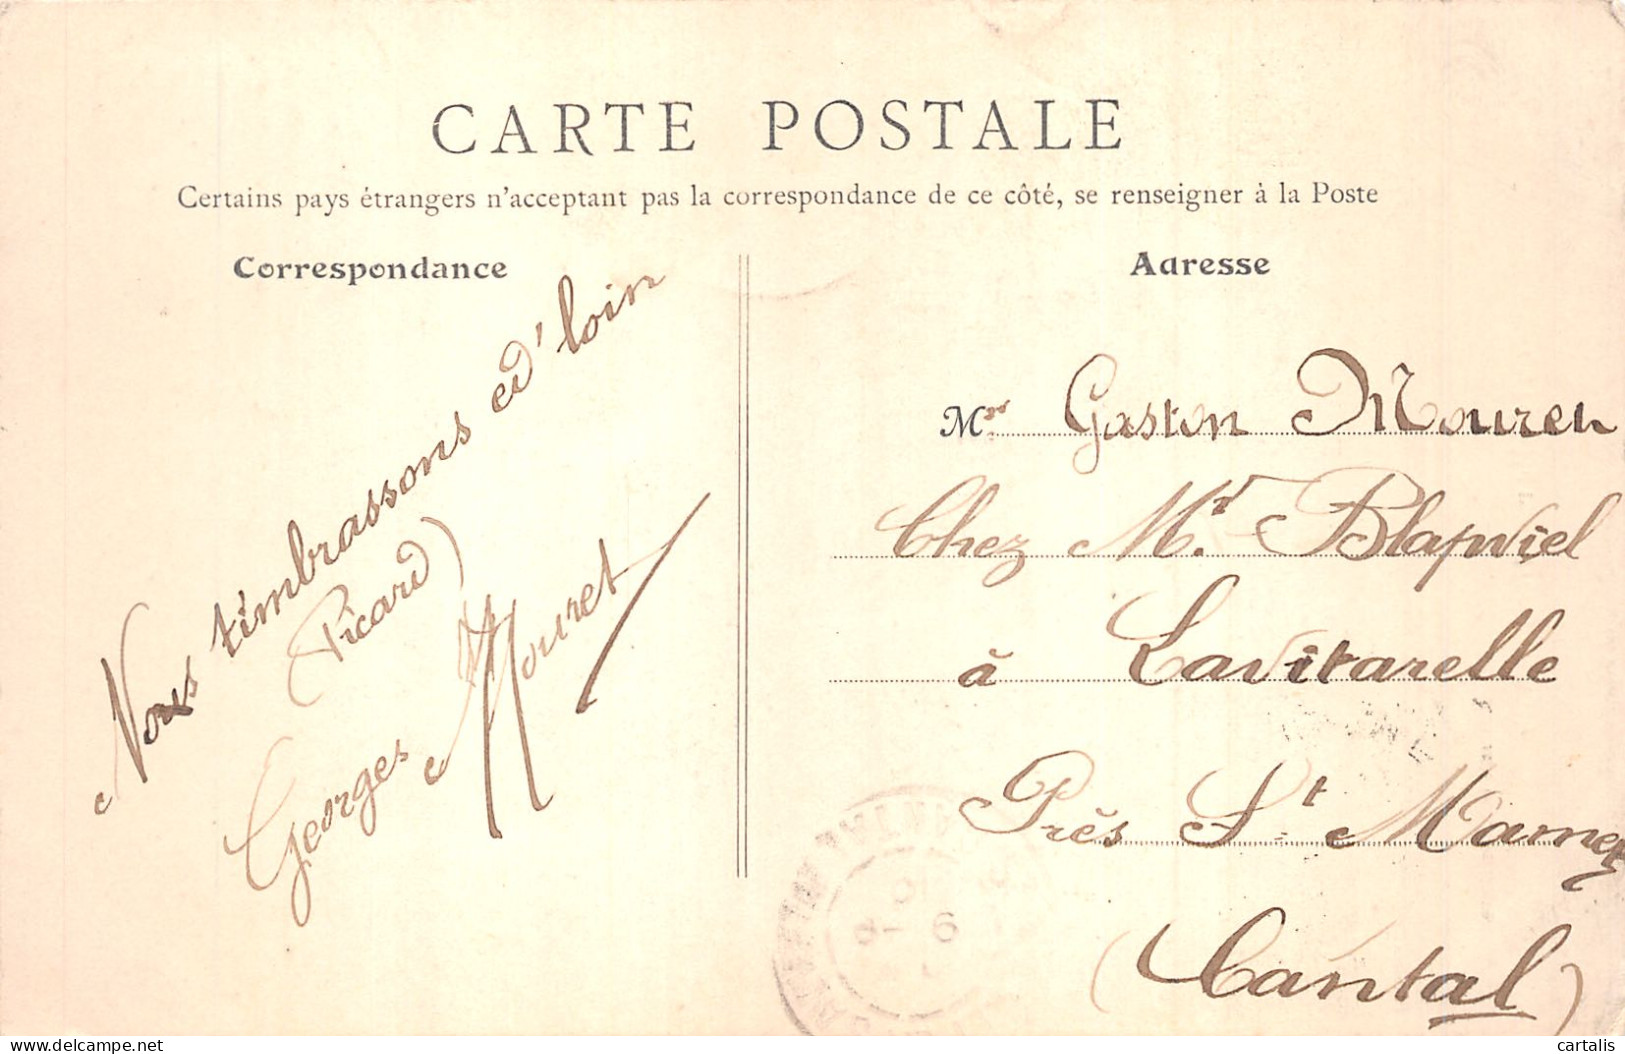 CARTE POSTALE
Certains pays étrangers n'acceptant pas la correspondance de ce côté, se renseigner à la Poste
Correspondance
Adresse
Nous t'imbrassons ed' loin
(Picard)
Georges Mouret
Mr Gaston Mouret
Chez Mr.
à Lavitarelle
Près St Mamet
(Cantal)
delcampe.net
cartalis